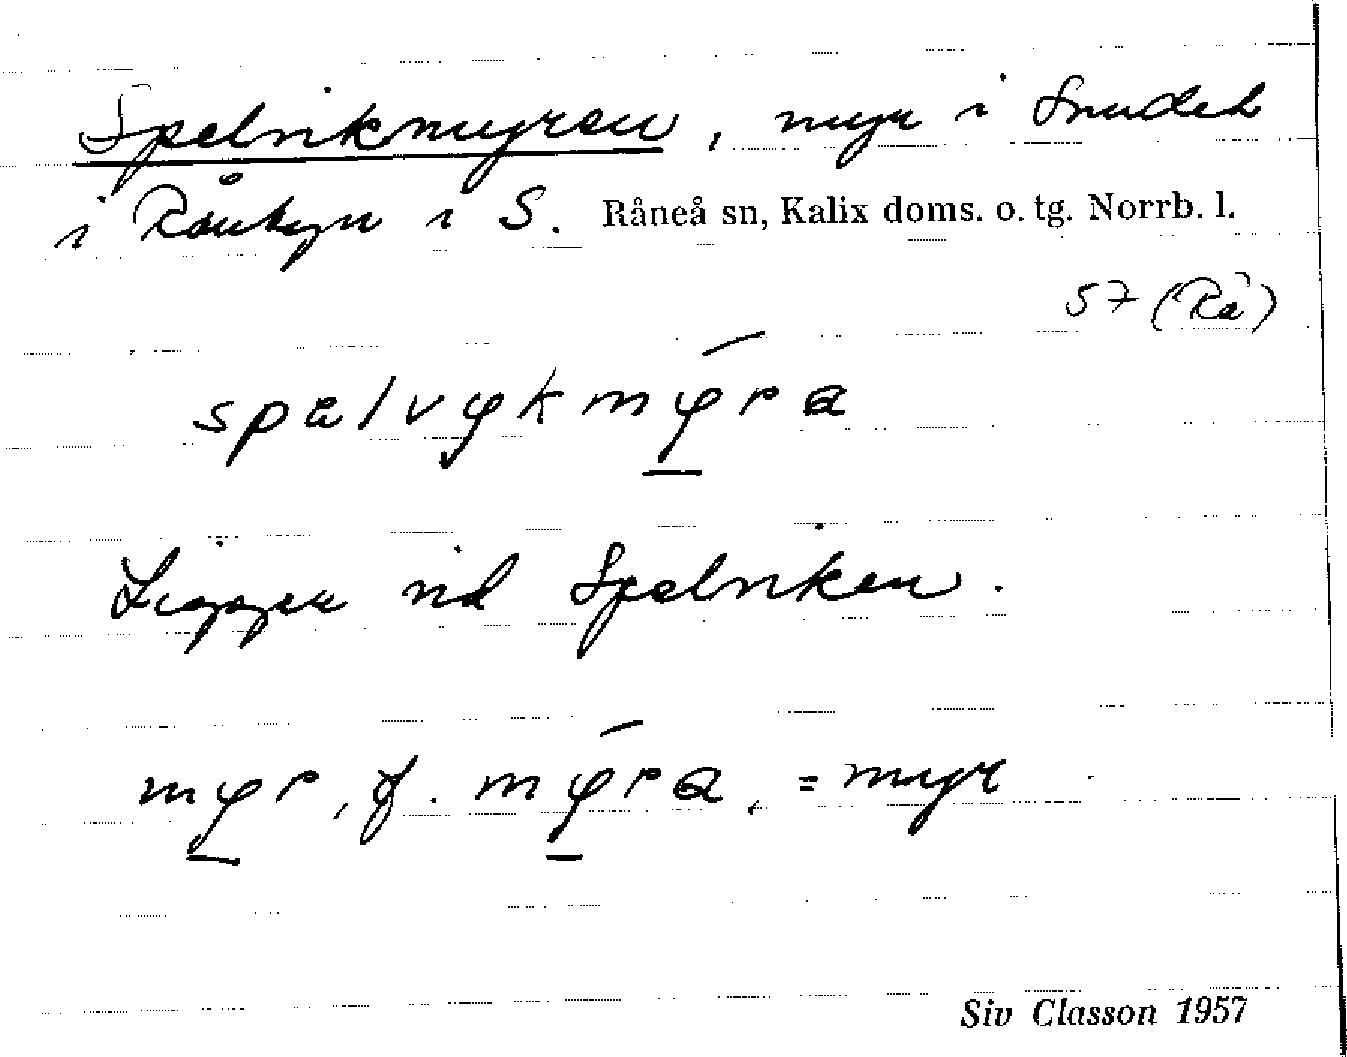 Spelvikmyren, myr i Smedet
i Rånbyn i S. Råneå sn, Kalix doms. o. tg. Norrb. l.
57 (Rå)
spælvykmýra
Ligger vid Spelviken.
myr, f. mýra, = myr
Siv Classon 1957